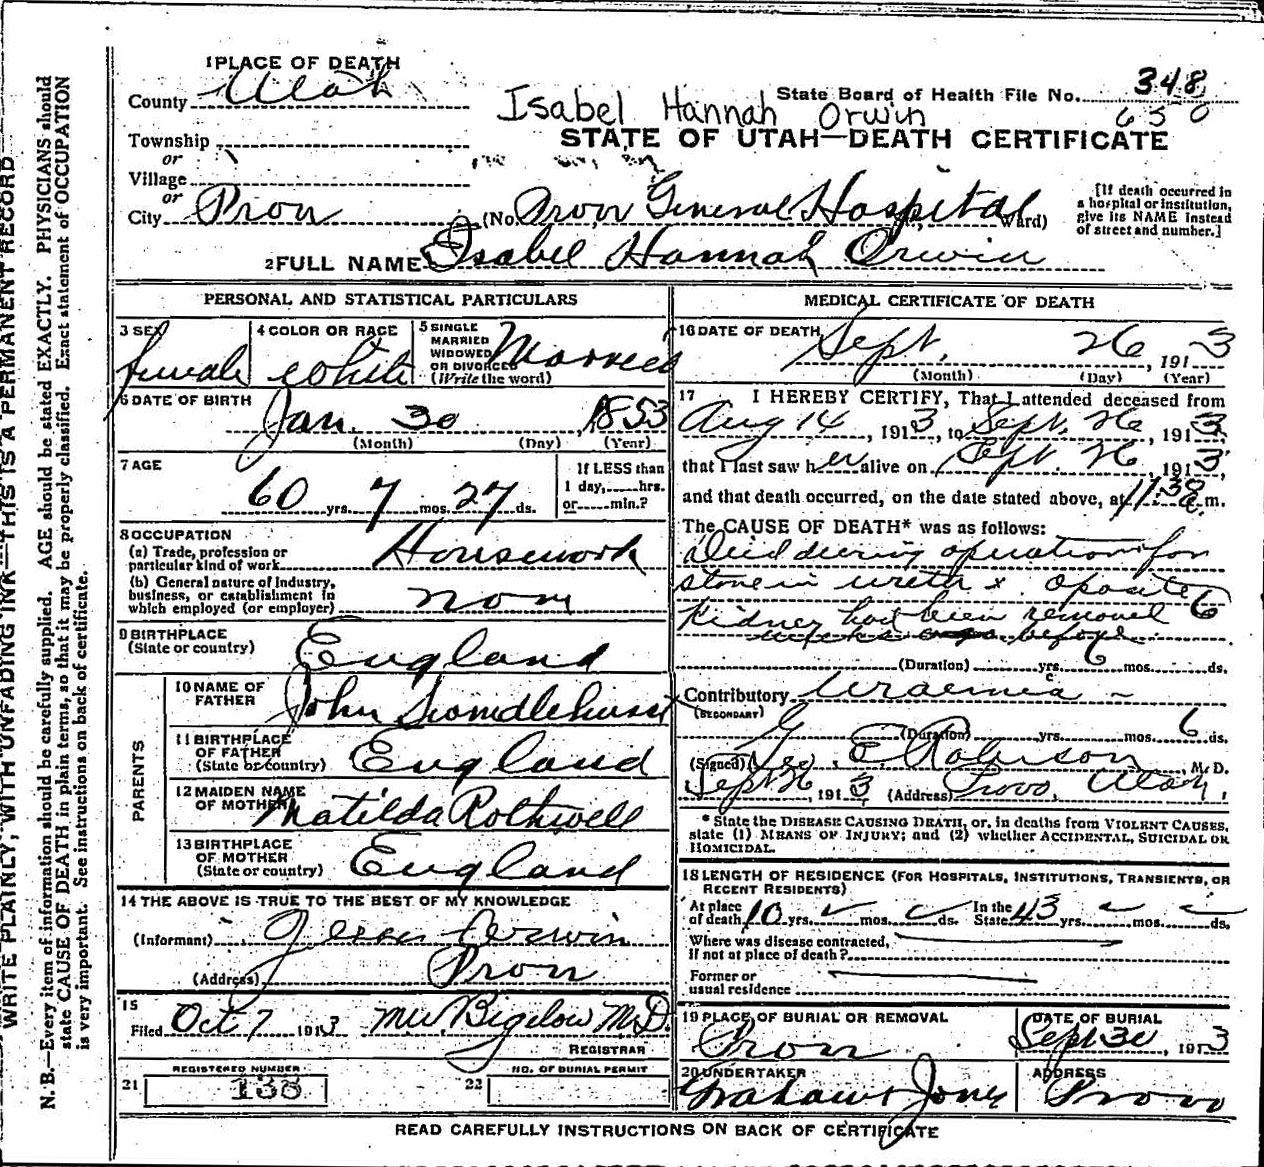 1 PLACE OF DEATH
County Utah
State Board of Health File No. 348
650
Isabel Hannah Orwin
STATE OF UTAH—DEATH CERTIFICATE
Township
or
Village
or
City Provo (No. Provo General Hospital Ward)
[If death occurred in a hospital or institution, give its NAME instead of street and number.]
2 FULL NAME Isabel Hannah Orwin
PERSONAL AND STATISTICAL PARTICULARS
3 SEX female
4 COLOR OR RACE white
5 SINGLE MARRIED WIDOWED OR DIVORCED (Write the word) Married
6 DATE OF BIRTH
Jan. 30, 1853
(Month) (Day) (Year)
7 AGE
60 yrs. 7 mos. 27 ds.
If LESS than 1 day, hrs. or min.?
8 OCCUPATION
(a) Trade, profession or particular kind of work Housework
(b) General nature of industry, business, or establishment in which employed (or employer)
9 BIRTHPLACE
(State or country) England
PARENTS
10 NAME OF FATHER John
11 BIRTHPLACE OF FATHER (State or country) England
12 MAIDEN NAME OF MOTHER Matilda Rothwell
13 BIRTHPLACE OF MOTHER (State or country) England
14 THE ABOVE IS TRUE TO THE BEST OF MY KNOWLEDGE
(Informant)
(Address) Provo
15
Filed Oct 7 1913 Bigelow M.D.
REGISTRAR
REGISTERED NUMBER
21 138
NO. OF BURIAL PERMIT
22
MEDICAL CERTIFICATE OF DEATH
16 DATE OF DEATH
Sept. 26, 1913
(Month) (Day) (Year)
17 I HEREBY CERTIFY, That I attended deceased from
Aug 14, 1913, to Sept. 26, 1913,
that I last saw her alive on Sept. 26, 1913,
and that death occurred, on the date stated above, at m.
The CAUSE OF DEATH* was as follows:
Died during operation for
stone in ureth x oposite
Kidney had been removed 6
before
(Duration) yrs. 6 mos. ds.
Contributory Uraemia
(SECONDARY)
(Duration) yrs. mos. 6 ds.
(Signed) Geo. E Robinson, M. D.
Sept 26, 1913 (Address) Provo, Utah,
* State the DISEASE CAUSING DEATH, or, in deaths from VIOLENT CAUSES, state (1) MEANS OF INJURY; and (2) whether ACCIDENTAL, SUICIDAL OR HOMICIDAL.
18 LENGTH OF RESIDENCE (FOR HOSPITALS, INSTITUTIONS, TRANSIENTS, OR RECENT RESIDENTS)
At place of death 10 yrs. mos. ds. In the State 43 yrs. mos. ds.
Where was disease contracted, If not at place of death?
Former or usual residence
19 PLACE OF BURIAL OR REMOVAL
Provo
DATE OF BURIAL
Sept 30, 1913
20 UNDERTAKER
Graham & Jones
ADDRESS
Provo
READ CAREFULLY INSTRUCTIONS ON BACK OF CERTIFICATE
WRITE PLAINLY, WITH UNFADING INK—THIS IS A PERMANENT RECORD
N. B.—Every item of information should be carefully supplied. AGE should be stated EXACTLY. PHYSICIANS should
state CAUSE OF DEATH in plain terms, so that it may be properly classified. Exact statement of OCCUPATION
is very important. See instructions on back of certificate.